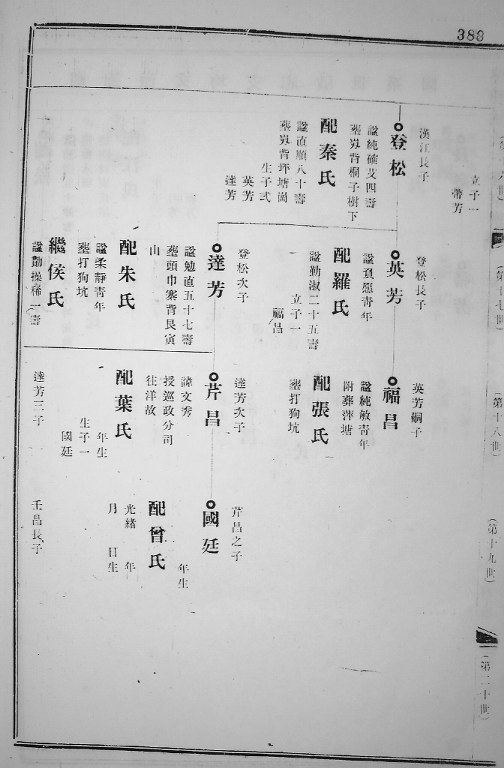 383
立子一
帶芳
漢江長子
登松
諡純確艾四壽
塟吳背桐子樹下
配秦氏
諡直順八十壽
塟吳背坪塘崗
生子弍
英芳
達芳
登松長子
英芳
諡貞愿青年
配羅氏
諡勤淑二十五壽
立子一
福昌
登松次子
達芳
諡勉直五十七壽
塟頭巾寨背艮寅
山
配朱氏
諡柔靜青年
塟打狗坑
繼侯氏
諡勤操稀一壽
英芳嗣子
福昌
諡純敏青年
附葬萍塘
配張氏
塟打狗坑
達芳次子
芹昌
諱文秀
授巡政分司
往洋故
配葉氏
年生
生子一
國廷
達芳三子
芹昌之子
國廷
年生
配曾氏
光緒 年
月 日生
壬昌長子
(第十八世)
(第十九世)
(第二十世)